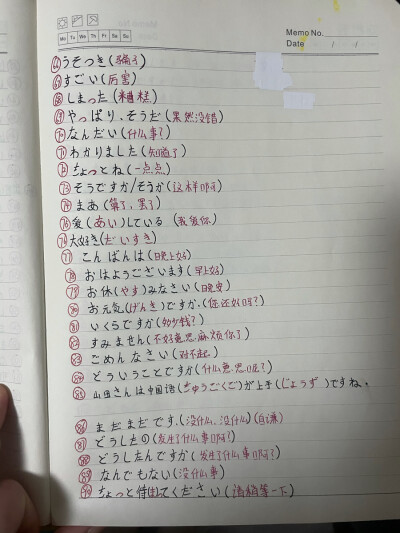 Memo No.
Mo Tu We Th Fr Sa Su
Date / /
66 うそつき(骗子)
すごい(厉害)
68 しまった(糟糕)
69 やっぱり、そうだ(果然没错)
70 なんだい(什么事?)
71 わかりました(知道了)
72 ちょっとね(一点点)
73 そうですか/そうか(这样啊)
まあ(算了,罢了)
愛(あい)している (我爱你)
76 大好き(だいすき)
77 こんばんは(晚上好)
78 おはようございます(早上好)
79 お休(やす)みなさい(晚安)
80 お元気(げんき)ですか.(您还好吗?)
81 いくらですか(多少钱?)
82 すみません(不好意思.麻烦你了)
83 ごめんなさい(对不起)
84 どういうことですか(什么意思呢?)
85 山田さんは中国語(ちゅうごくご)が上手(じょうず)ですね。
86 まだまだです.(没什么、没什么)(自谦)
87 どうしたの(发生了什么事啊?)
88 どうしたんですか(发生了什么事啊?)
89 なんでもない(没什么事)
90 ちょっと待(ま)てください(请稍等一下)